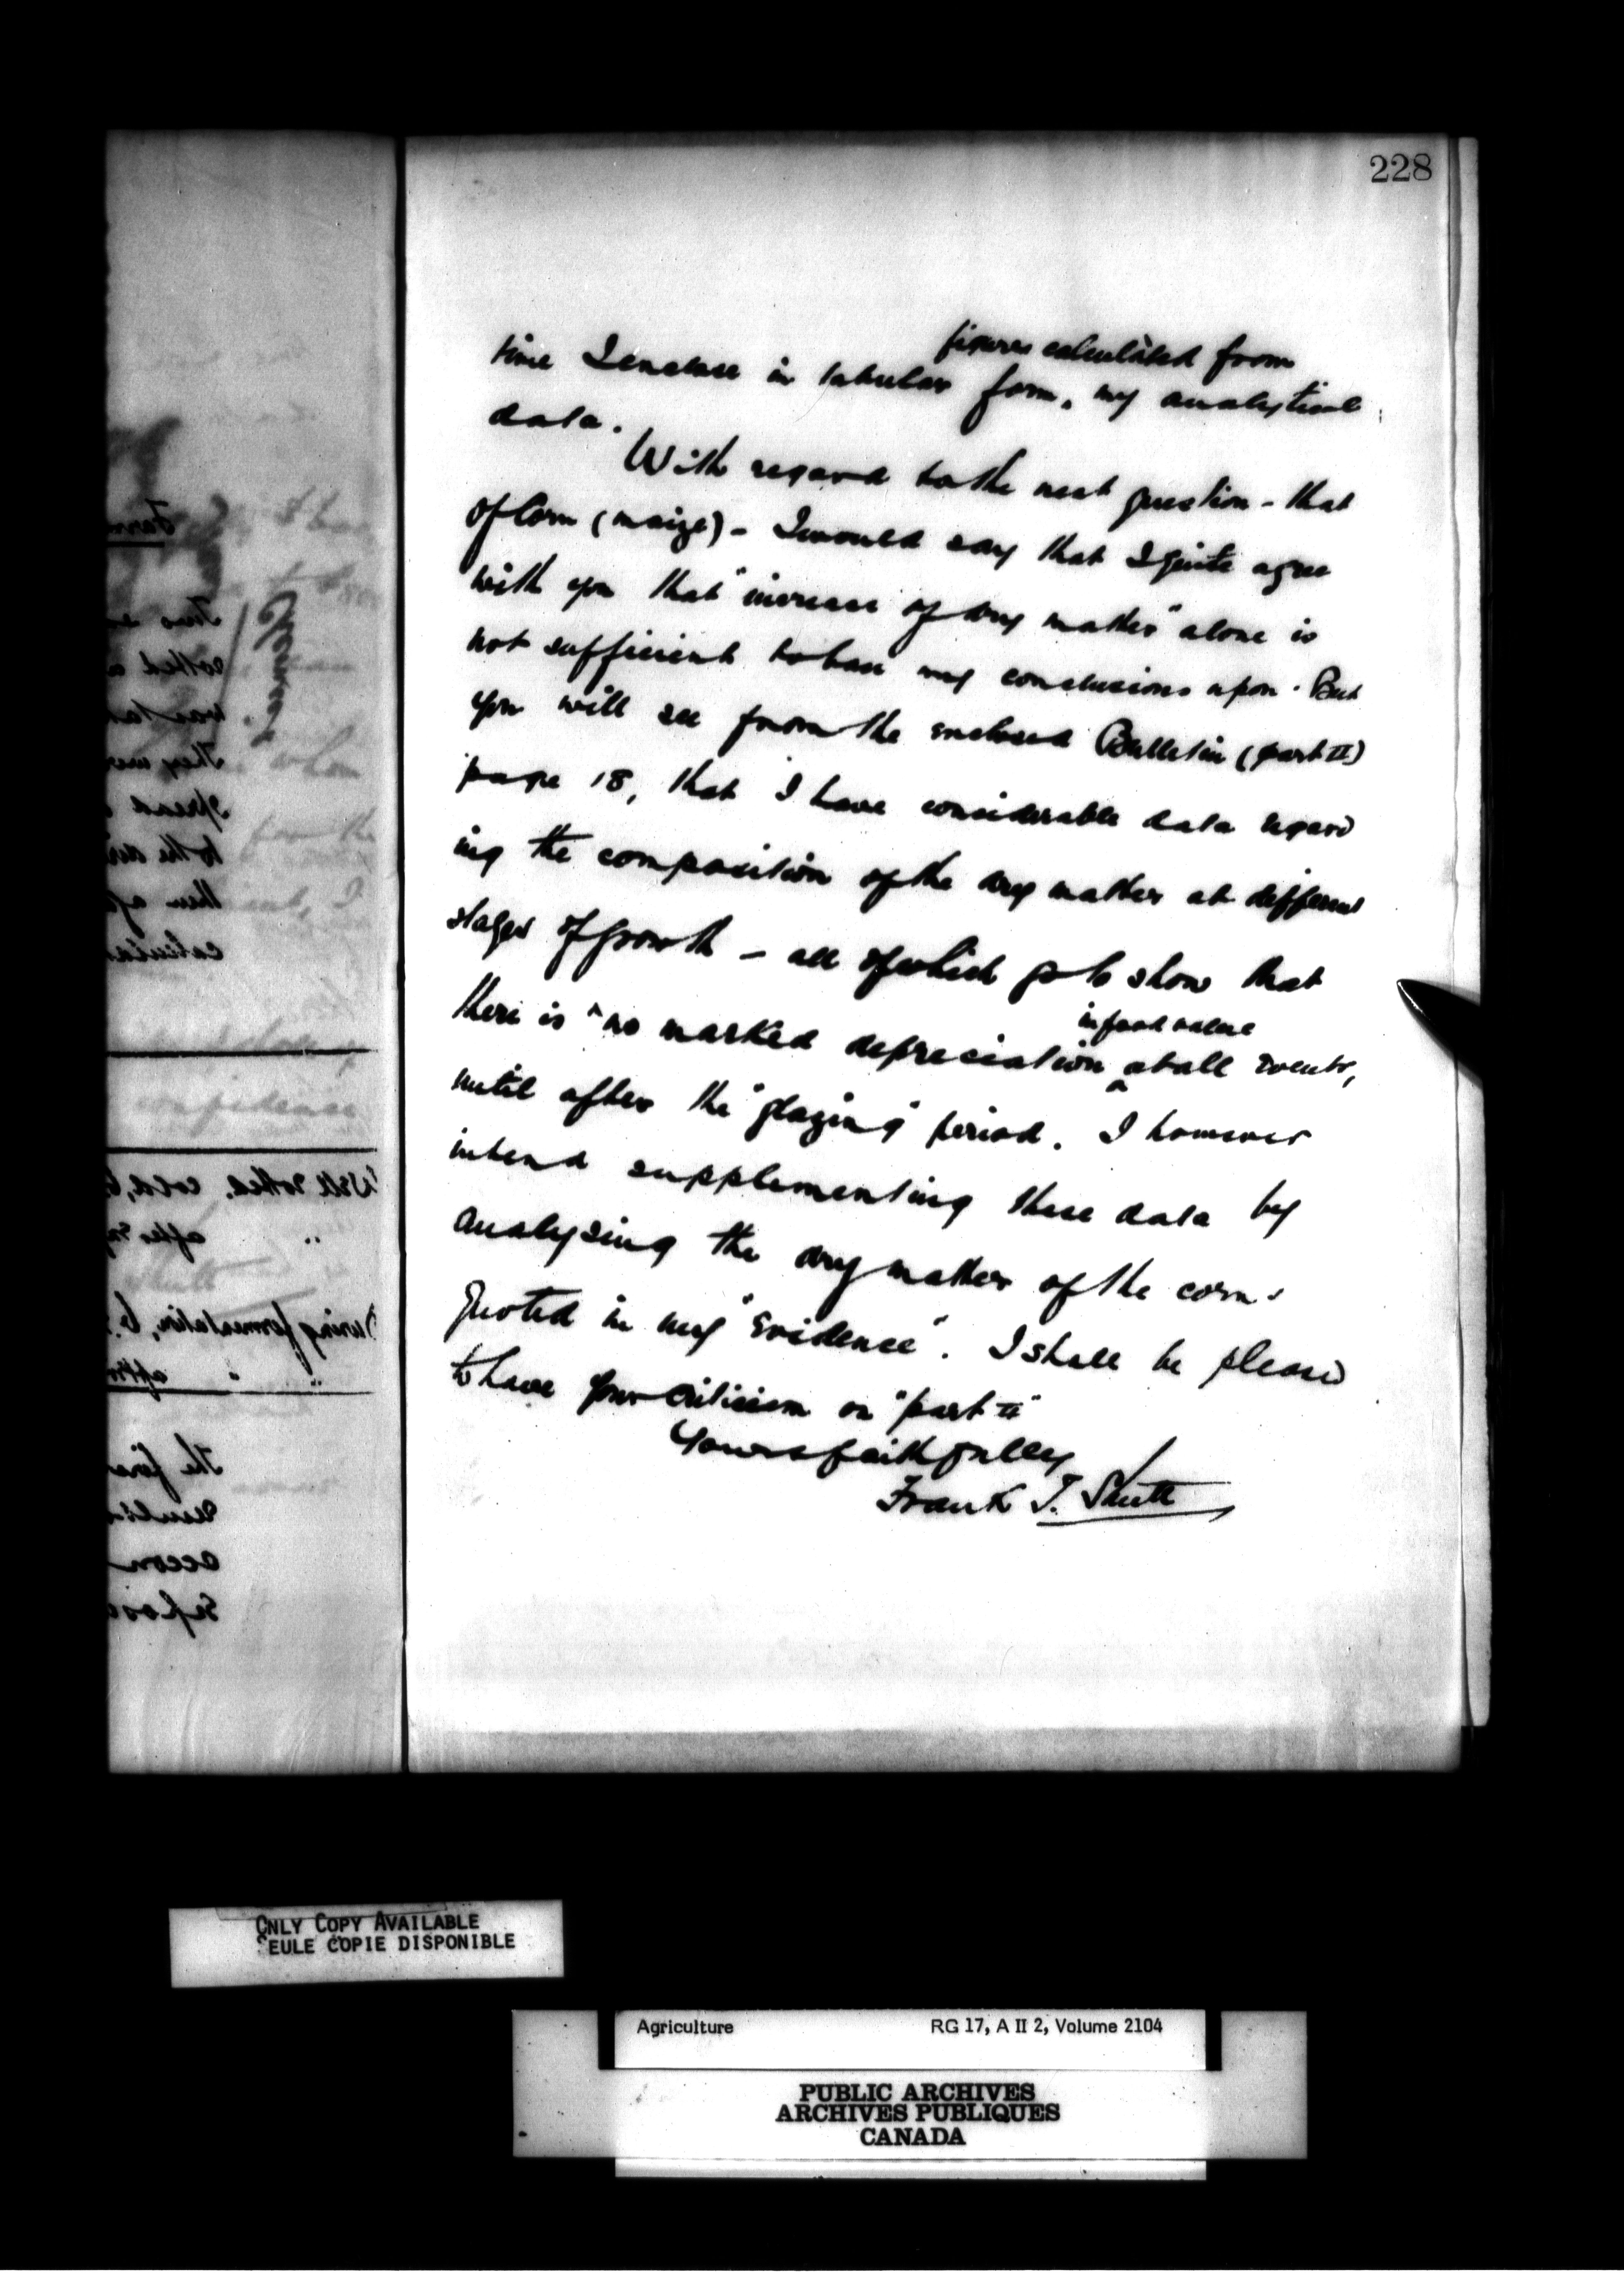 228
figures calculated from
time I enclose in tabular form, my analytical
data.
With regard to the next question - that
of Corn (maize) - I would say that I quite agree
with you that "increase of dry matter" alone is
not sufficient to base my conclusions upon. But
you will see from the enclosed Bulletin (part II)
page 18, that I have considerable data regard
ing the composition of the dry matter at different
stages of growth - all of which go to show that
in food value
there is "no marked depreciation at all events,
until after the "glazing" period. I however
intend supplementing these data by
analysing the dry matter of the corns
quoted in my "Evidence". I shall be pleased
to have your criticism on "part II"
Yours faithfully
Frank T. Shutt
ONLY COPY AVAILABLE
SEULE COPIE DISPONIBLE
Agriculture RG 17, A II 2, Volume 2104
PUBLIC ARCHIVES
ARCHIVES PUBLIQUES
CANADA